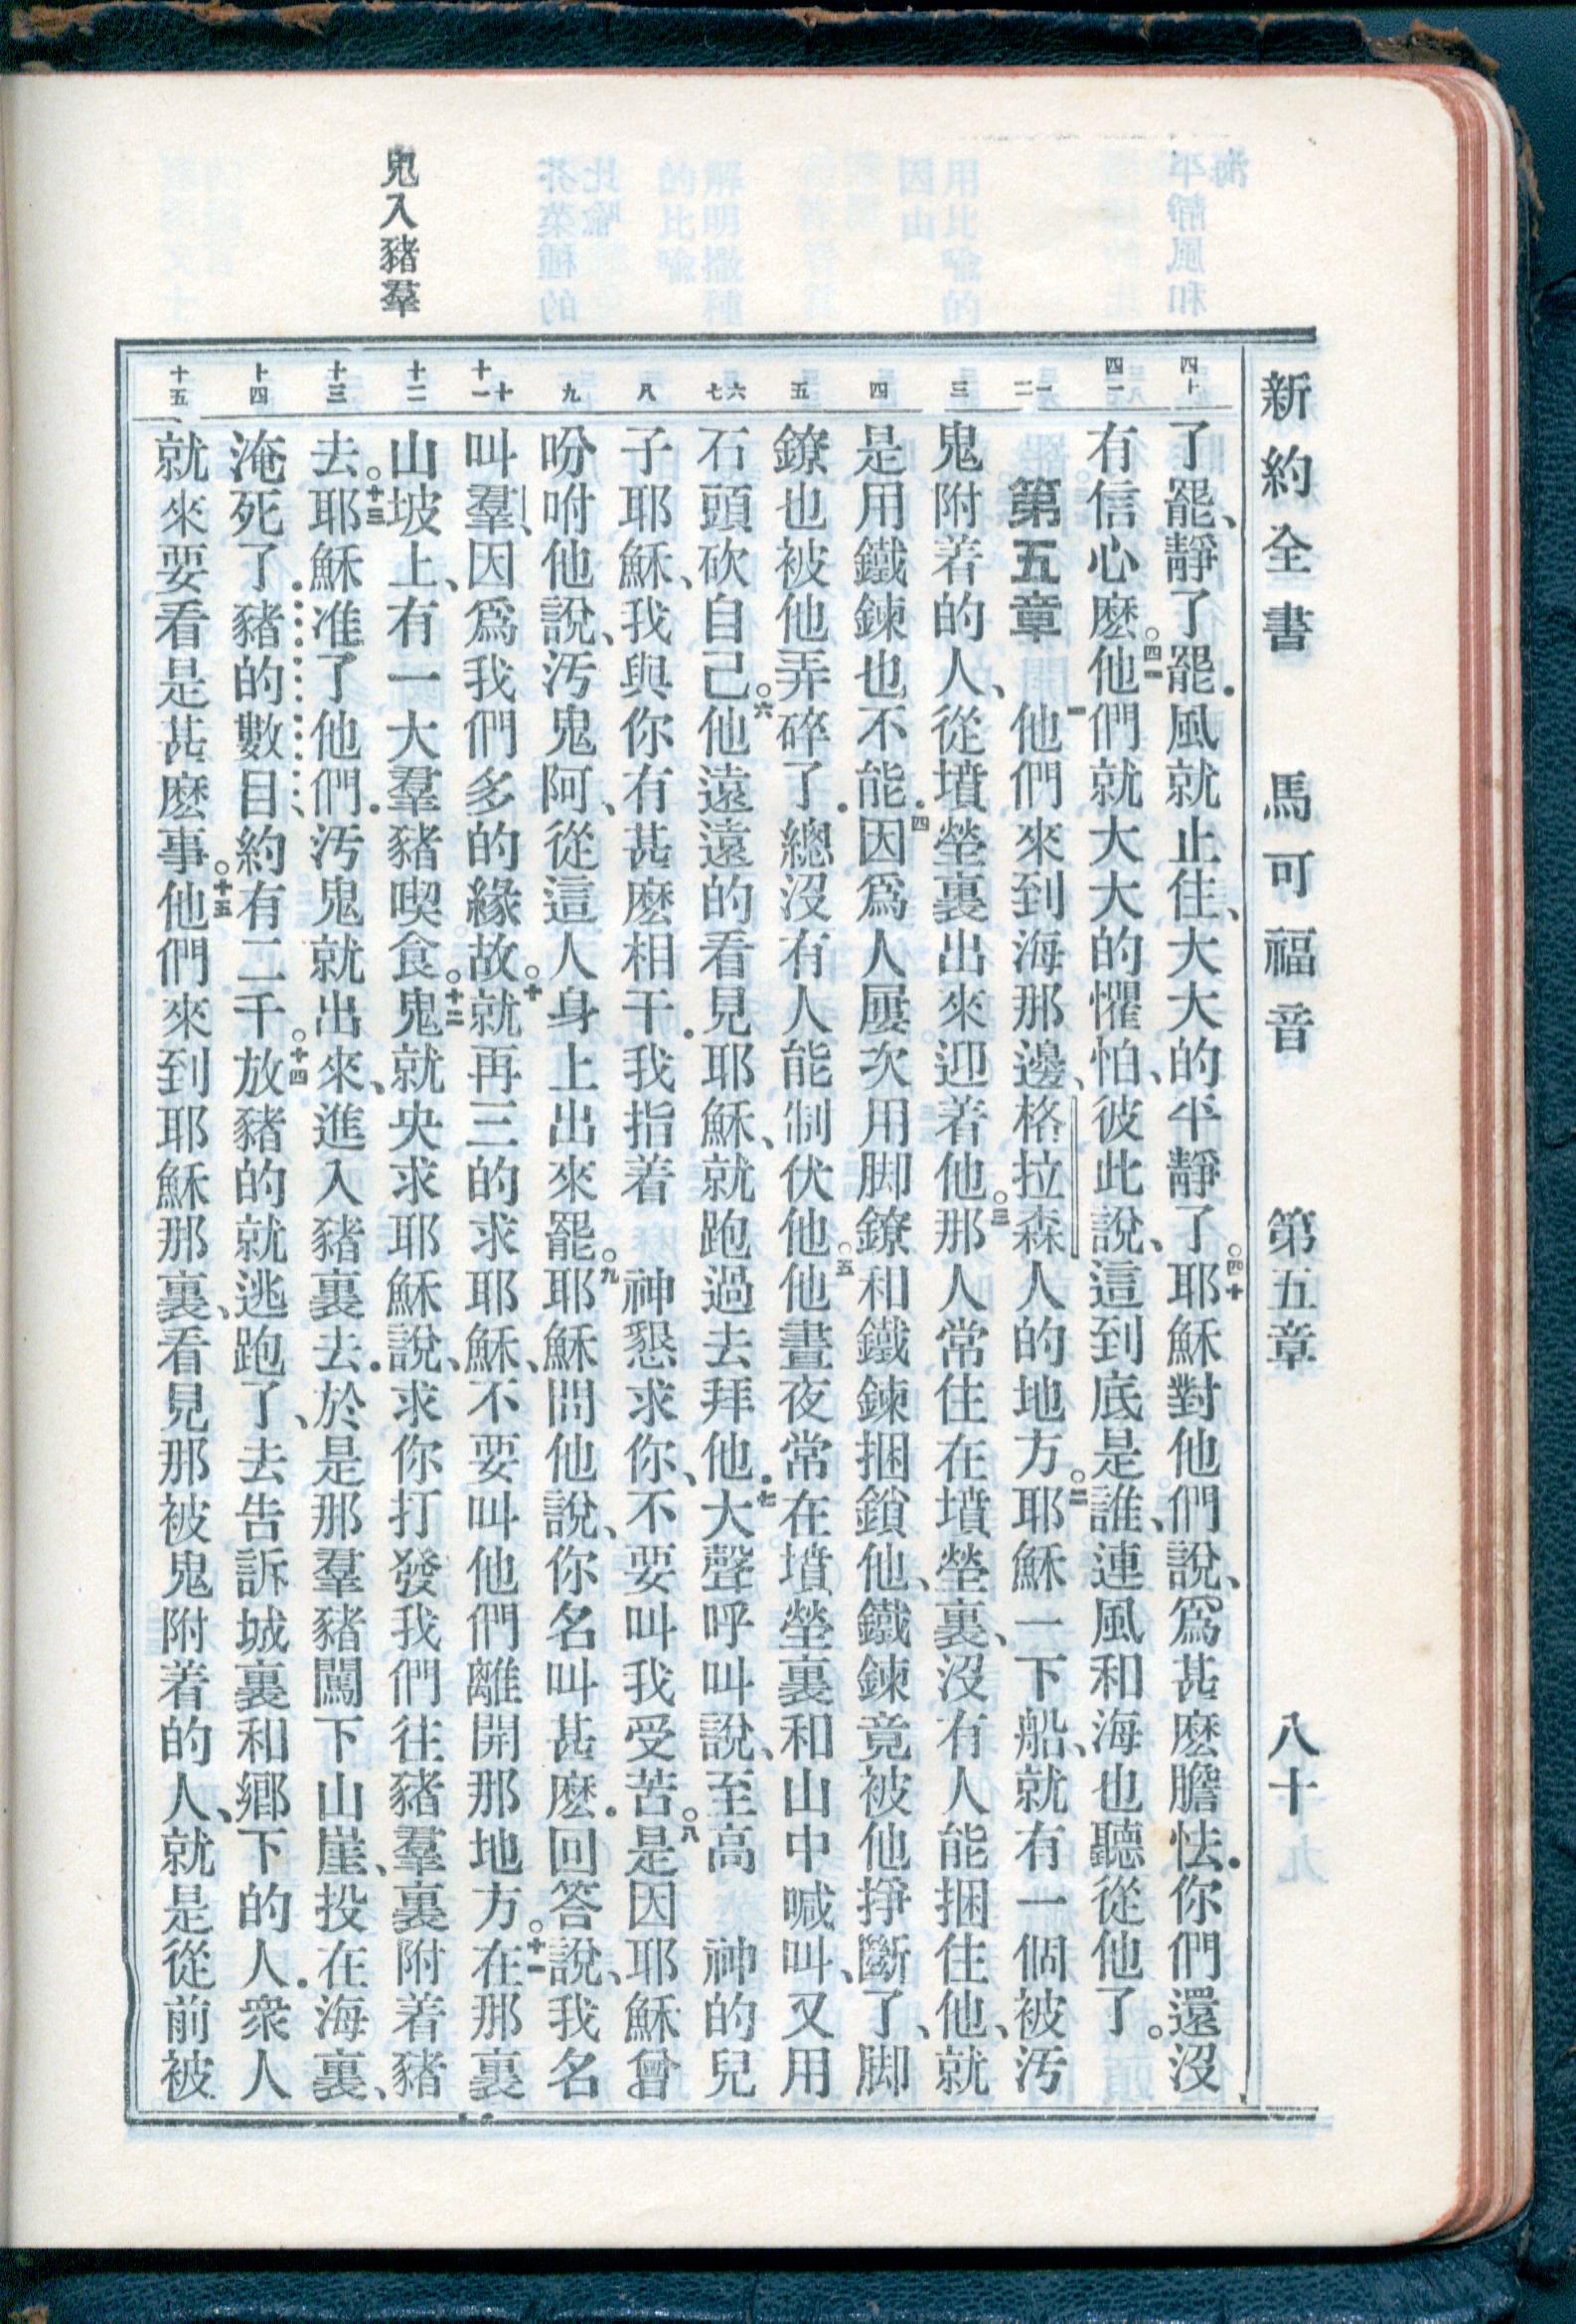 新約全書　馬可福音　第五章　八十
鬼入豬羣
四十
四一
一
二
三
四
五
六
七
八
九
十
十一
十二
十三
十四
十五
了罷、靜了罷．風就止住、大大的平靜了。四十耶穌對他們說、爲甚麽膽怯．你們還沒
有信心麽。四一他們就大大的懼怕、彼此說、這到底是誰、連風和海也聽從他了。
第五章　一他們來到海那邊、格拉森人的地方。二耶穌一下船、就有一個被汚
鬼附着的人、從墳塋裏出來迎着他。三那人常住在墳塋裏、沒有人能捆住他、就
是用鐵鍊也不能．四因爲人屢次用脚鐐和鐵鍊捆鎖他、鐵鍊竟被他掙斷了、脚
鐐也被他弄碎了．總沒有人能制伏他。五他晝夜常在墳塋裏和山中喊叫、又用
石頭砍自己。六他遠遠的看見耶穌、就跑過去拜他．七大聲呼叫說、至高　神的兒
子耶穌、我與你有甚麽相干．我指着　神懇求你、不要叫我受苦。八是因耶穌曾
吩咐他說、汚鬼阿、從這人身上出來罷。九耶穌問他說、你名叫甚麽．回答說、我名
叫羣、因爲我們多的緣故。十就再三的求耶穌、不要叫他們離開那地方。十一在那裏
山坡上、有一大羣豬喫食。十二鬼就央求耶穌說、求你打發我們往豬羣裏附着豬
去。十三耶穌准了他們．汚鬼就出來、進入豬裏去．於是那羣豬闖下山崖、投在海裏、
淹死了豬的數目約有二千。十四放豬的就逃跑了、去告訴城裏和鄉下的人．衆人
就來要看是甚麽事。十五他們來到耶穌那裏、看見那被鬼附着的人、就是從前被